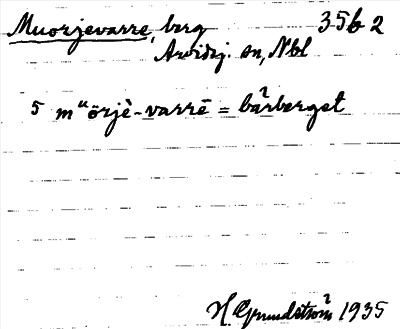 Muorjevarre, berg 35b 2
Arvidsj. sn, Nbl
5 mᵘörjè-varrē = bàrberget
H. Grundström 1935